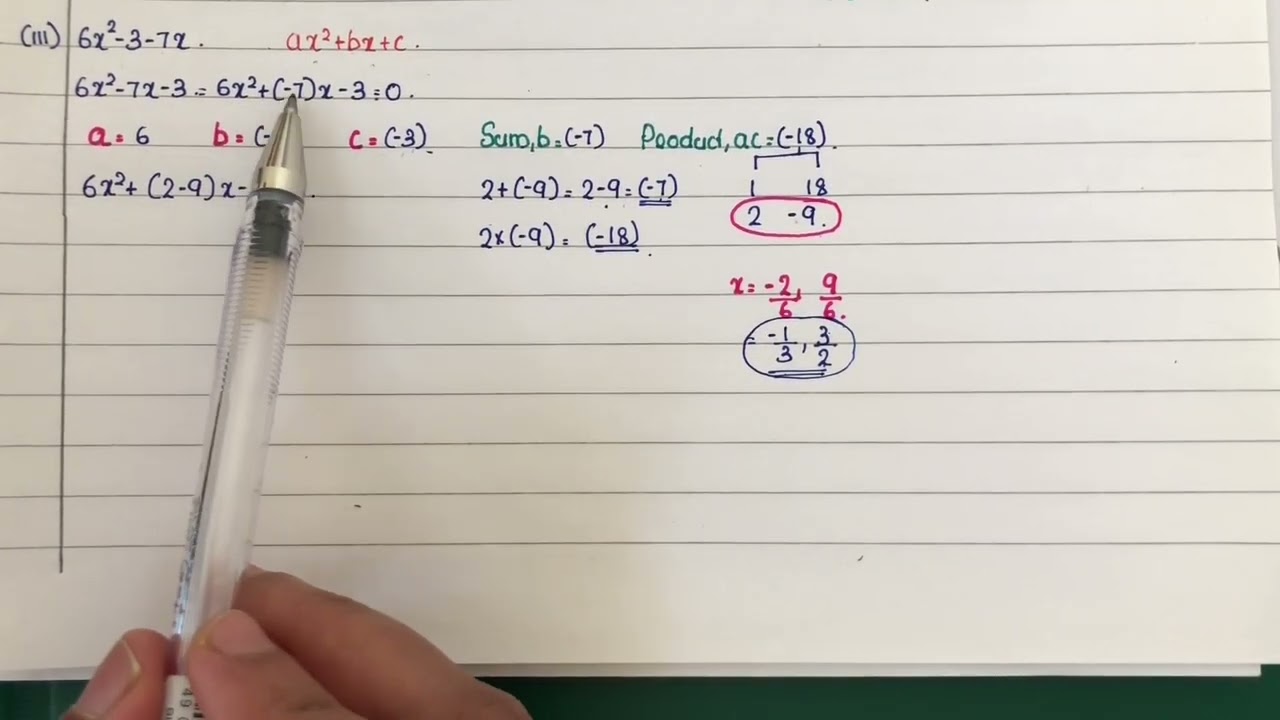 (III) 6x²-3-7x. ax²+bx+c.
6x²-7x-3 = 6x²+(-7)x-3=0.
a = 6 b = (- c = (-3) Sum, b = (-7) Product, ac = (-18).
6x²+(2-9)x- . 2+(-9) = 2-9 = (-7) 1 18
2 -9.
2×(-9) = (-18).
x = -2/6, 9/6.
= -1/3, 3/2
49